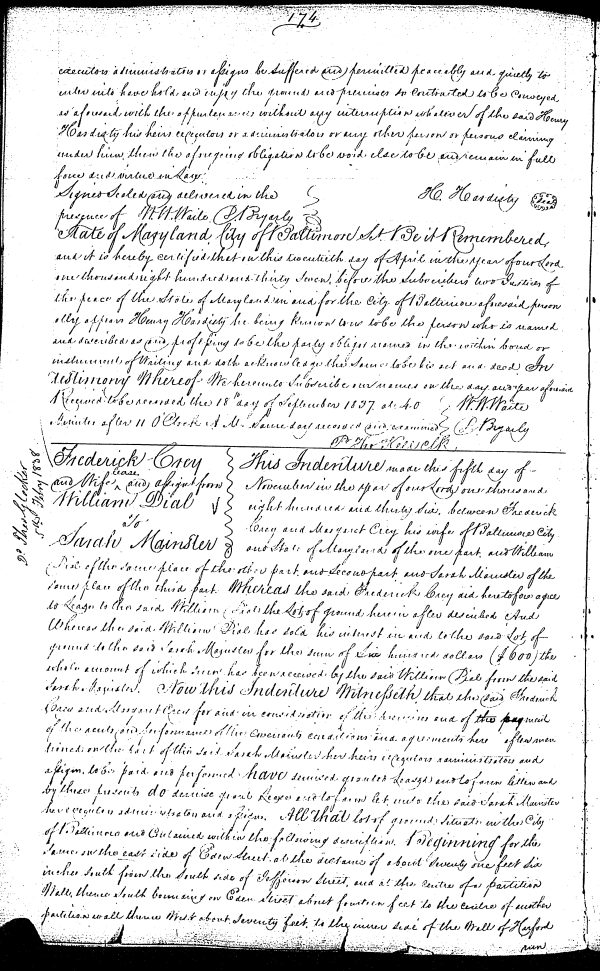 174
executors administrators or assigns be suffered and permitted peaceably and quietly to
enter into have hold and enjoy the ground and premises so contracted to be conveyed
as aforesaid with the appurtenances without any interruption whatever of the said Henry
Hardisty his heirs executors or administrators or any other person or persons claiming
under him, then the aforegoing obligation to be void else to be and remain in full
force and virtue in Law
Signed Sealed and delivered in the
H. Hardisty Seal
presence of W. W. Waite S. Byerly
State of Maryland, City of Baltimore Sct. Be it Remembered,
and it is hereby certified that on this twentieth day of April in the year of our Lord
one thousand eight hundred and thirty seven, before the Subscribers two Justices of
the peace of the State of Maryland in and for the City of Baltimore aforesaid person
ally appears Henry Hardisty he being known to us to be the person who is named
and described as and professing to be the party obligor named in the within bond or
instrument of Writing and doth acknowledge the same to be his act and deed In
testimony Whereof We hereunto Subscribe our names on the day and year aforesaid
Received to be recorded the 18th day of September 1837 at 40
W. W. Waite
Minutes after 11 O'Clock A. M. Same day recorded and examined
S. Byerly
Pr Tho Kell clk
Frederick Crey
and Wife lease and assignt from
William Dial
To
Sarah Mainster
Dd 5th Feby 1838
This Indenture made this fifth day of
November in the year of our Lord one thousand
eight hundred and thirty six, between Frederick
Crey and Margaret Crey his wife of Baltimore City
and State of Maryland of the one part, and William
Dial of the same place of the other part, and Second part, and Sarah Mainster of the
same place of the third part. Whereas the said Frederick Crey did heretofore agree
to Lease to the said William Dial the Lot of ground herein after described And
Whereas the said William Dial has sold his interest in and to the said Lot of
ground to the said Sarah Mainster for the sum of Six hundred dollars ($600) the
whole amount of which sum has been received by the said William Dial from the said
Sarah Mainster. Now this Indenture Witnesseth, that the said Frederick
Crey and Margaret Crey for and in consideration of the premises and of the payment
of the rents and performance of the covenants conditions and agreements here after men
tioned on the part of the said Sarah Mainster her heirs executors administrators and
assigns, to be paid and performed have demised granted Leased and to farm letten and
by these presents do demise grant Lease and to farm let, unto the said Sarah Mainster
her executors administrators and assigns. All that lot of ground situate in the City
of Baltimore and Contained within the following description. Beginning for the
same on the east side of Eden Street at the distance of about Seventy one feet six
inches south from the South side of Jefferson Street, and at the centre of a partition
Wall, thence South bounding on Eden Street about fourteen feet to the centre of another
partition wall thence West about Seventy feet, to the inner side of the Wall of Harford
run